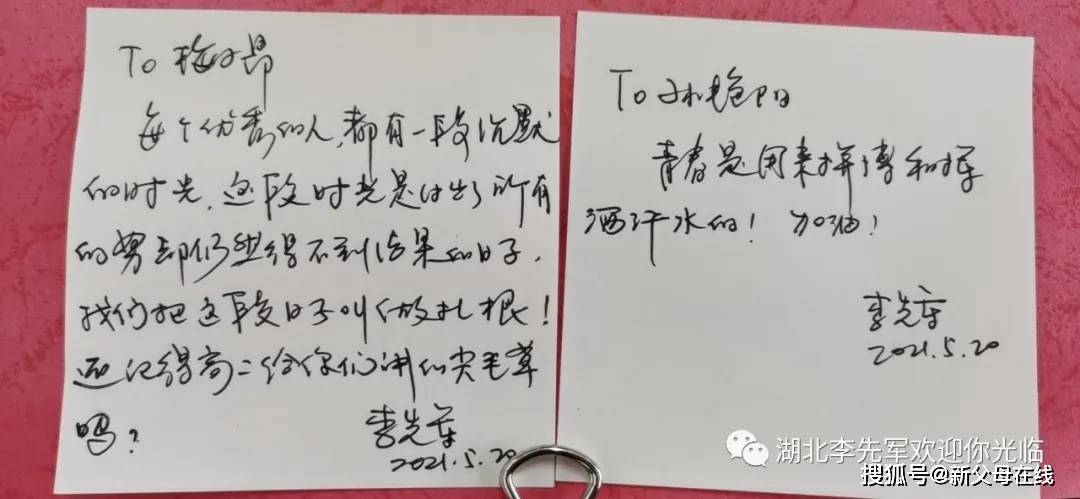 To 梅子昂
每个优秀的人,都有一段沉默
的时光,这段时光是付出了所有
的努却仍然得不到结果的日子,
我们把这段日子叫做扎根!
还记得高二给你们讲的尖毛草
吗?
李先军
2021.5.20
To 孙艳阳
青春是用来拼搏和挥
洒汗水的!加油!
李先军
2021.5.20
湖北李先军欢迎你光临
搜狐号@新父母在线